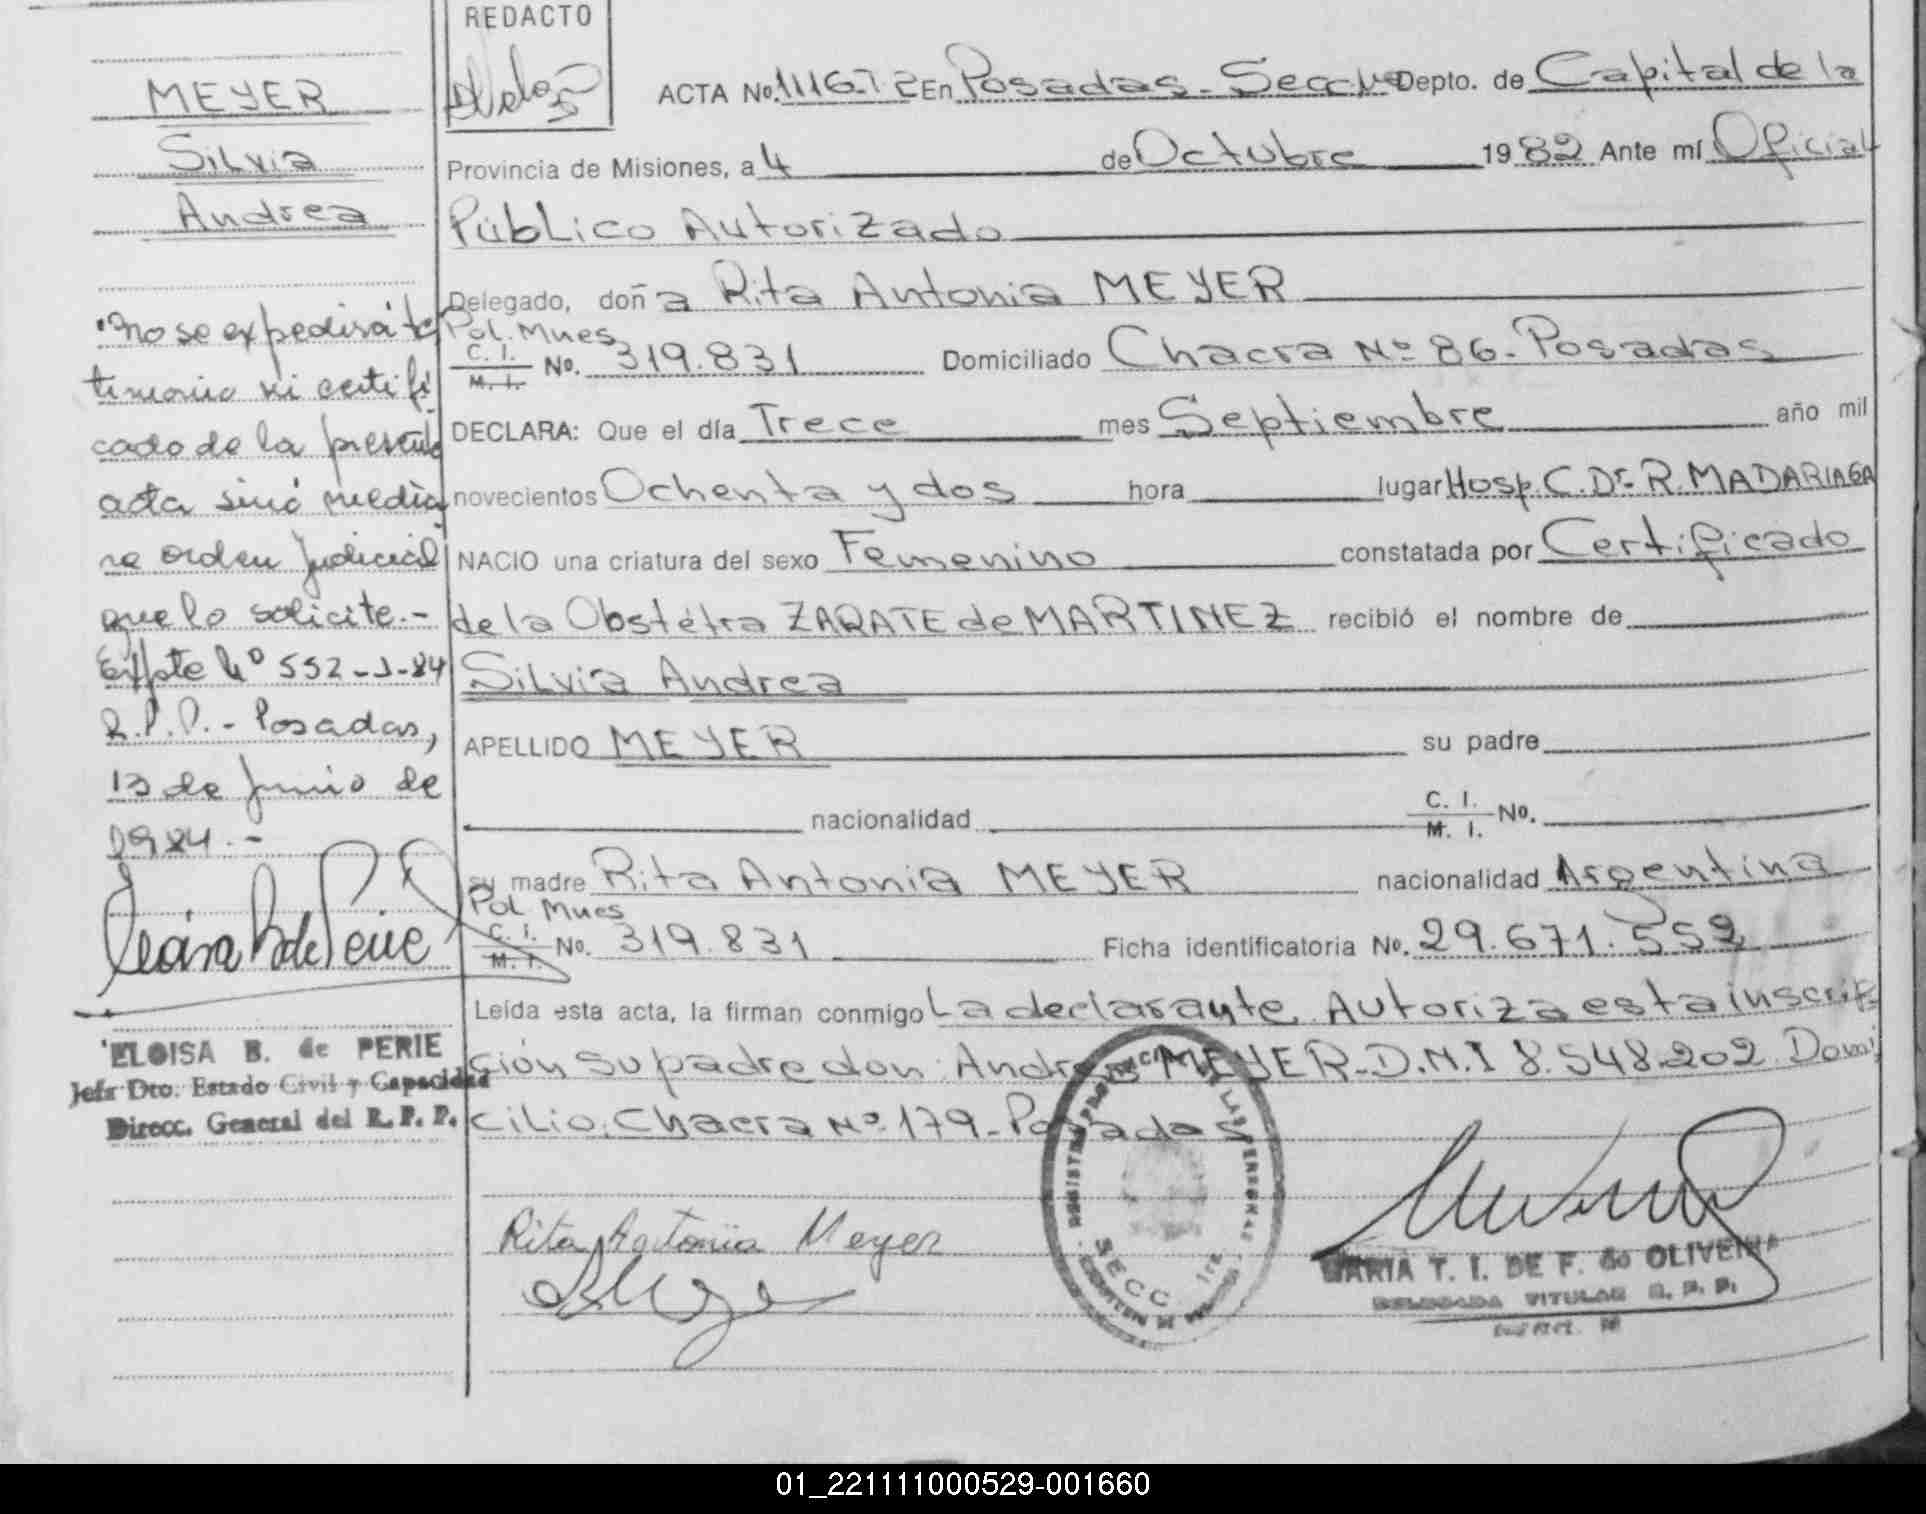 REDACTO
MEYER
Silvia
Andrea
"no se expedirá tes
timonio ni certifi
cado de la presente
acta sinó media
ne orden judicial
que lo solicite.-
Expte Nº 552-J-84
R.P.P.- Posadas,
13 de Junio de
1984.-
ELOISA B. de PERIE
Jefa Dto. Estado Civil y Capacidad
Direcc. General del R. P. P.
ACTA No. En Posadas - Depto. de Capital de la
Provincia de Misiones, a 4 de Octubre 1982 Ante mí Oficial
Público Autorizado
Delegado, doña Rita Antonia MEYER
Pol. Mnes
C. I.
M. I. No. 319.831 Domiciliado Chacra Nº 86 - Posadas
DECLARA: Que el día Trece mes Septiembre año mil
novecientos Ochenta y dos hora lugar Hosp. C. Dr. R. MADARIAGA
NACIO una criatura del sexo Femenino constatada por Certificado
de la Obstétra ZARATE de MARTINEZ recibió el nombre de
Silvia Andrea
APELLIDO MEYER su padre
nacionalidad C. I.
M. I. No.
su madre Rita Antonia MEYER nacionalidad Argentina
Pol Mnes
C. I.
M. I. No. 319.831 Ficha identificatoria No. 29.671.552
Leída esta acta, la firman conmigo La declarante, Autoriza esta inscrip
ción su padre don Andres MEYER - D.N.I 8.548.202 Domi
cilio, Chacra Nº 179 - Posadas
Rita Antonia Meyer
SECC 1ra
MARIA T. I. DE F. do OLIVEIRA
DELEGADA TITULAR R. P. P.
01_221111000529-001660